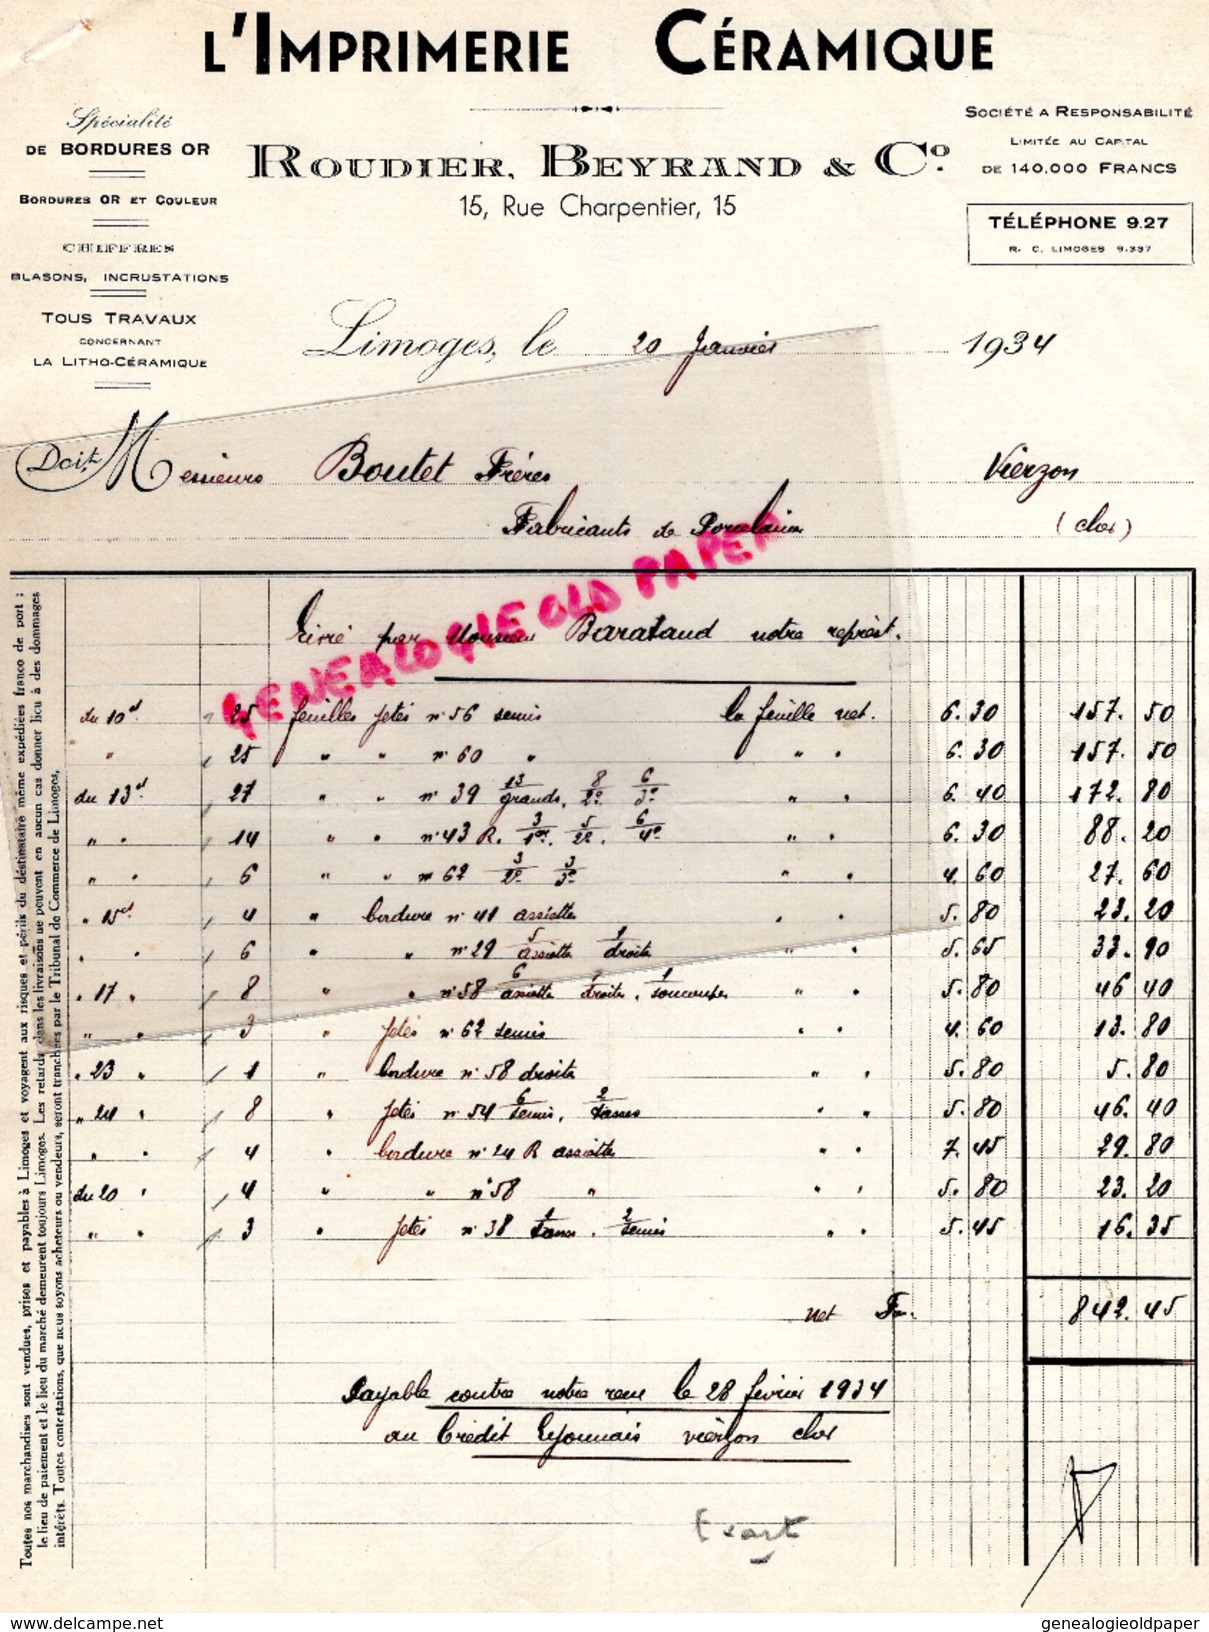 L'IMPRIMERIE CÉRAMIQUE
Spécialité
DE BORDURES OR
BORDURES OR ET COULEUR
CHIFFRES
BLASONS, INCRUSTATIONS
TOUS TRAVAUX
CONCERNANT
LA LITHO-CÉRAMIQUE
ROUDIER, BEYRAND & Cº.
15, Rue Charpentier, 15
SOCIÉTÉ A RESPONSABILITÉ
LIMITÉE AU CAPITAL
DE 140.000 FRANCS
TÉLÉPHONE 9.27
R. C. LIMOGES 9.337
Limoges, le 20 Janvier 1934
Doit, Messieurs Boutet Frères Vierzon
Fabricants de Porcelaine (cher)
GENEALOGIE OLD PAPER
Livré par Monsieur Barataud notre représt.
du 10 ct 25 feuilles jetés nº 56 semis la feuille net. 6.30 157.50
" 25 " " nº 60 " " " 6.30 157.50
du 13 ct. 27 " " nº 39 13/grands, 8/2º 6/3º " " 6.40 172.80
" " 14 " " nº 43 R. 3/1er. 5/2º. 6/4º " " 6.30 88.20
" " 6 " " nº 62 3/2º 3/3º " " 4.60 27.60
" 15 ct 4 " bordure nº 41 assiette " " 5.80 23.20
" " 6 " " nº 29 5/assiette 1/droite " " 5.65 33.90
" 17 " 8 " " nº 58 6/assiette 1/droite, 1/soucoupe " " 5.80 46 40
" " 3 " jetés nº 62 semis " " 4.60 13.80
" 23 " 1 " bordure nº 58 droite " " 5.80 5.80
" 24 " 8 " jetés nº 54 6/semis, 2/tasses " " 5.80 46.40
" " 4 " bordure nº 24 R assiette " " 7.45 29.80
du 20 " 4 " " nº 58 " " " 5.80 23.20
" " 3 " jetés nº 38 1/tasse. 2/semis " " 5.45 16.35
net Frs. 842.45
Payable contre notre recu le 28 février 1934
au Crédit Lyonnais vierzon cher
Exact
Toutes nos marchandises sont vendues, prises et payables à Limoges et voyagent aux risques et périls du destinataire même expédiées franco de port ;
le lieu de paiement et le lieu du marché demeurent toujours Limoges. Les retards dans les livraisons ne pouvent en aucun cas donner lieu à des dommages
intérêts. Toutes contestations, que nous soyons acheteurs ou vendeurs, seront tranchées par le Tribunal de Commerce de Limoges.
www.delcampe.net
genealogieoldpaper